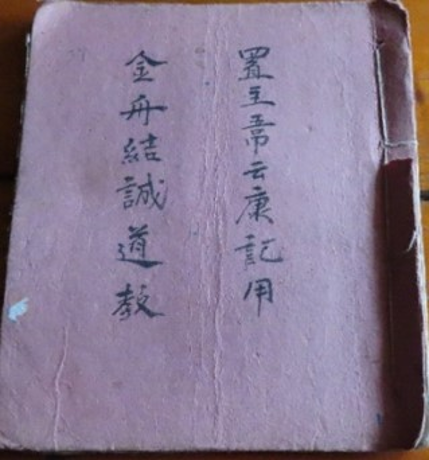 置主云康記用
金舟結誠道教